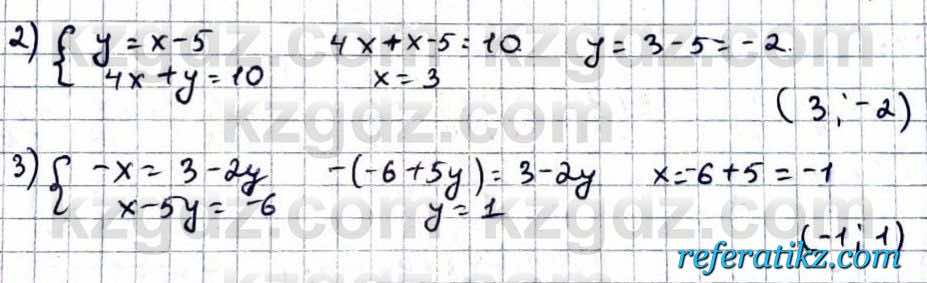 2) { y = x - 5    4x + x - 5 = 10.    y = 3 - 5 = -2.
4x + y = 10    x = 3
(3; -2)
3) { -x = 3 - 2y    -(-6 + 5y) = 3 - 2y    x = -6 + 5 = -1
x - 5y = -6    y = 1
(-1; 1)
kzgdz.com
kzgdz.com
kzgdz.com
referatikz.com